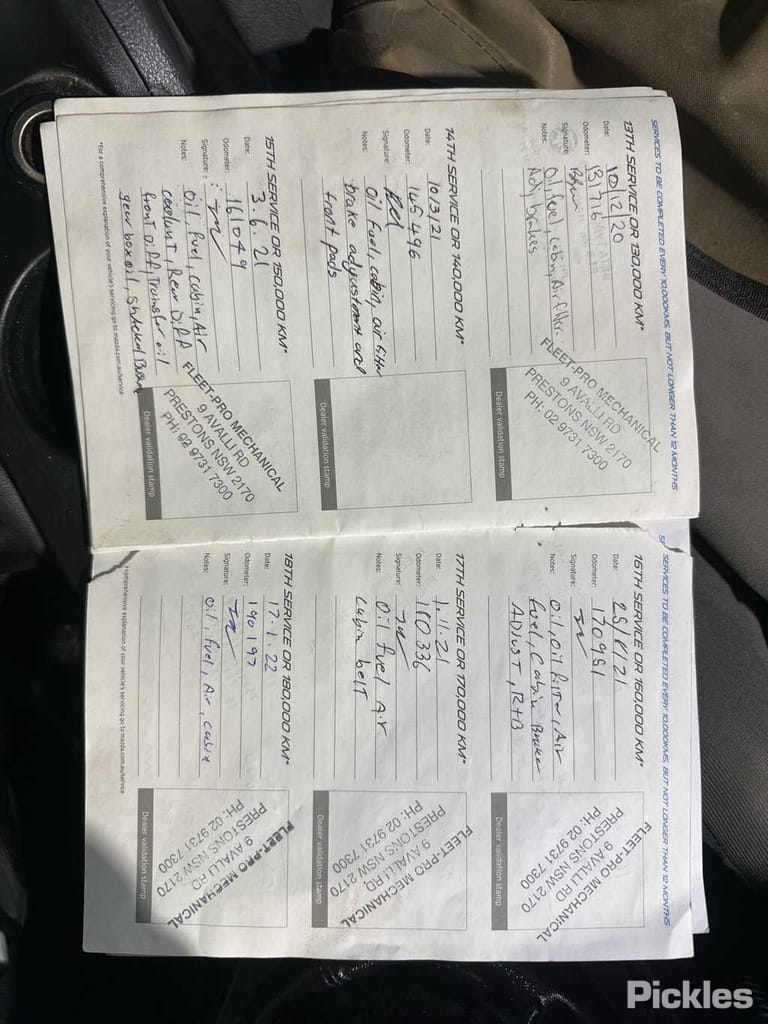 SERVICES TO BE COMPLETED EVERY 10,000KMS, BUT NOT LONGER THAN 12 MONTHS
13TH SERVICE OR 130,000 KM*
Date: 10/12/20
Odometer: 131716
Signature:
Notes: Oil, fuel, cabin, Air filter
Adj brakes
FLEET-PRO MECHANICAL
9 AVALLI RD
PRESTONS NSW 2170
PH: 02 9731 7300
Dealer validation stamp
14TH SERVICE OR 140,000 KM*
Date: 10/3/21
Odometer: 145496
Signature:
Notes: Oil fuel, cabin, air filter
brake adjustment and
front pads
Dealer validation stamp
15TH SERVICE OR 150,000 KM*
Date: 3.6.21
Odometer: 161049
Signature:
Notes: Oil, fuel, cabin, Air
coolant, Rear Diff
front Diff, Transfer oil
gear box oil,
FLEET-PRO MECHANICAL
9 AVALLI RD
PRESTONS NSW 2170
PH: 02 9731 7300
Dealer validation stamp
*For a comprehensive explanation of your vehicle's servicing go to mazda.com.au/service
SERVICES TO BE COMPLETED EVERY 10,000KMS, BUT NOT LONGER THAN 12 MONTHS
16TH SERVICE OR 160,000 KM*
Date: 25/8/21
Odometer: 170951
Signature:
Notes: Oil, oil filter, Air
fuel, Cabin Brake
ADJUST, R+B
FLEET-PRO MECHANICAL
9 AVALLI RD
PRESTONS NSW 2170
PH: 02 9731 7300
Dealer validation stamp
17TH SERVICE OR 170,000 KM*
Date: 1.11.21
Odometer: 180336
Signature:
Notes: Oil fuel Air
cabin belt
FLEET-PRO MECHANICAL
9 AVALLI RD
PRESTONS NSW 2170
PH: 02 9731 7300
Dealer validation stamp
18TH SERVICE OR 180,000 KM*
Date: 17.1.22
Odometer: 190197
Signature:
Notes: Oil, fuel, Air, cabin
FLEET-PRO MECHANICAL
9 AVALLI RD
PRESTONS NSW 2170
PH: 02 9731 7300
Dealer validation stamp
comprehensive explanation of your vehicle's servicing go to mazda.com.au/service
Pickles